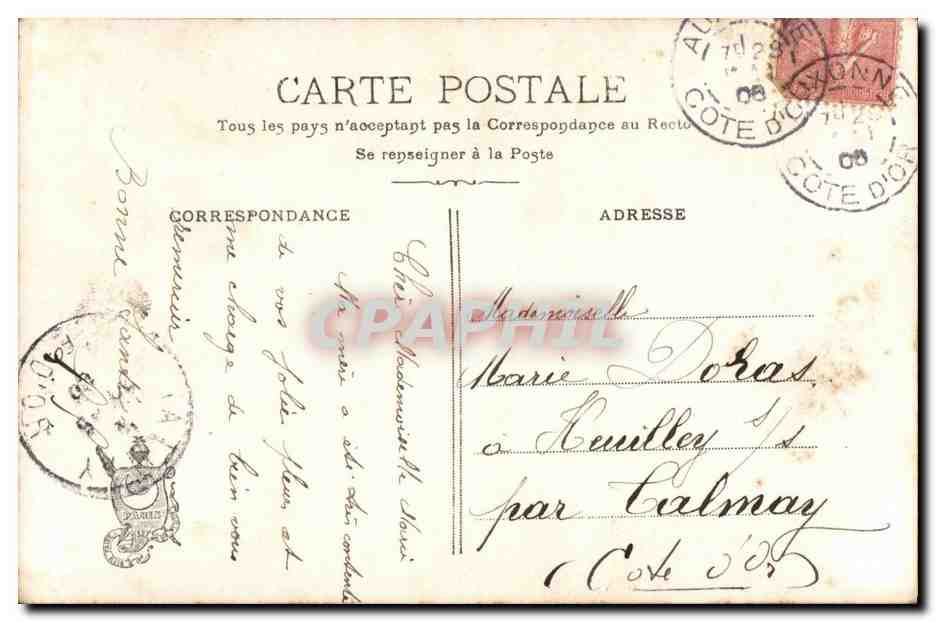 CARTE POSTALE
Tous les pays n'acceptant pas la Correspondance au Recto
Se renseigner à la Poste
CORRESPONDANCE
ADRESSE
Chère Mademoiselle Marie
Ma mère a été très contente
de vos jolies fleurs et
me charge de bien vous
remercier
Bonne santé
Mademoiselle
Marie Doras
à Heuilley s/s
par Talmay
(Cote d'Or)
AUXONNE
7 29
08
COTE D'OR
AUXONNE
7 29
08
COTE D'OR
D'OR
PARIS
CPAPHIL